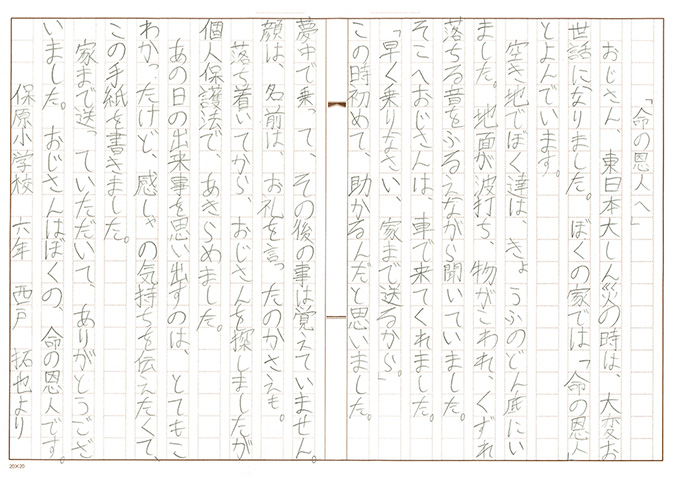 「命の恩人へ」
おじさん、東日本大しん災の時は、大変お
世話になりました。ぼくの家では「命の恩人」
とよんでいます。
空き地でぼく達は、きょうふのどん底にい
ました。地面が波打ち、物がこわれ、くずれ
落ちる音をふるえながら聞いていました。
そこへおじさんは、車で来てくれました。
「早く乗りなさい、家まで送るから。」
この時初めて、助かるんだと思いました。
夢中で乗って、その後の事は覚えていません。
顔は、名前は、お礼を言ったのかさえも。
落ち着いてから、おじさんを探しましたが
個人保護法で、あきらめました。
あの日の出来事を思い出すのは、とてもこ
わかったけど、感しゃの気持ちを伝えたくて、
この手紙を書きました。
家まで送っていただいて、ありがとうござ
いました。おじさんはぼくの、命の恩人です。
保原小学校 六年 西戸 拓也より
20×20